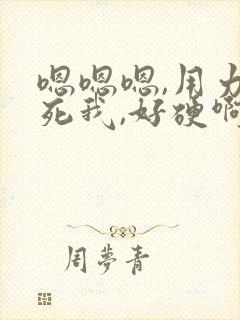 嗯嗯嗯,用力
死我,好硬啊
周夢青